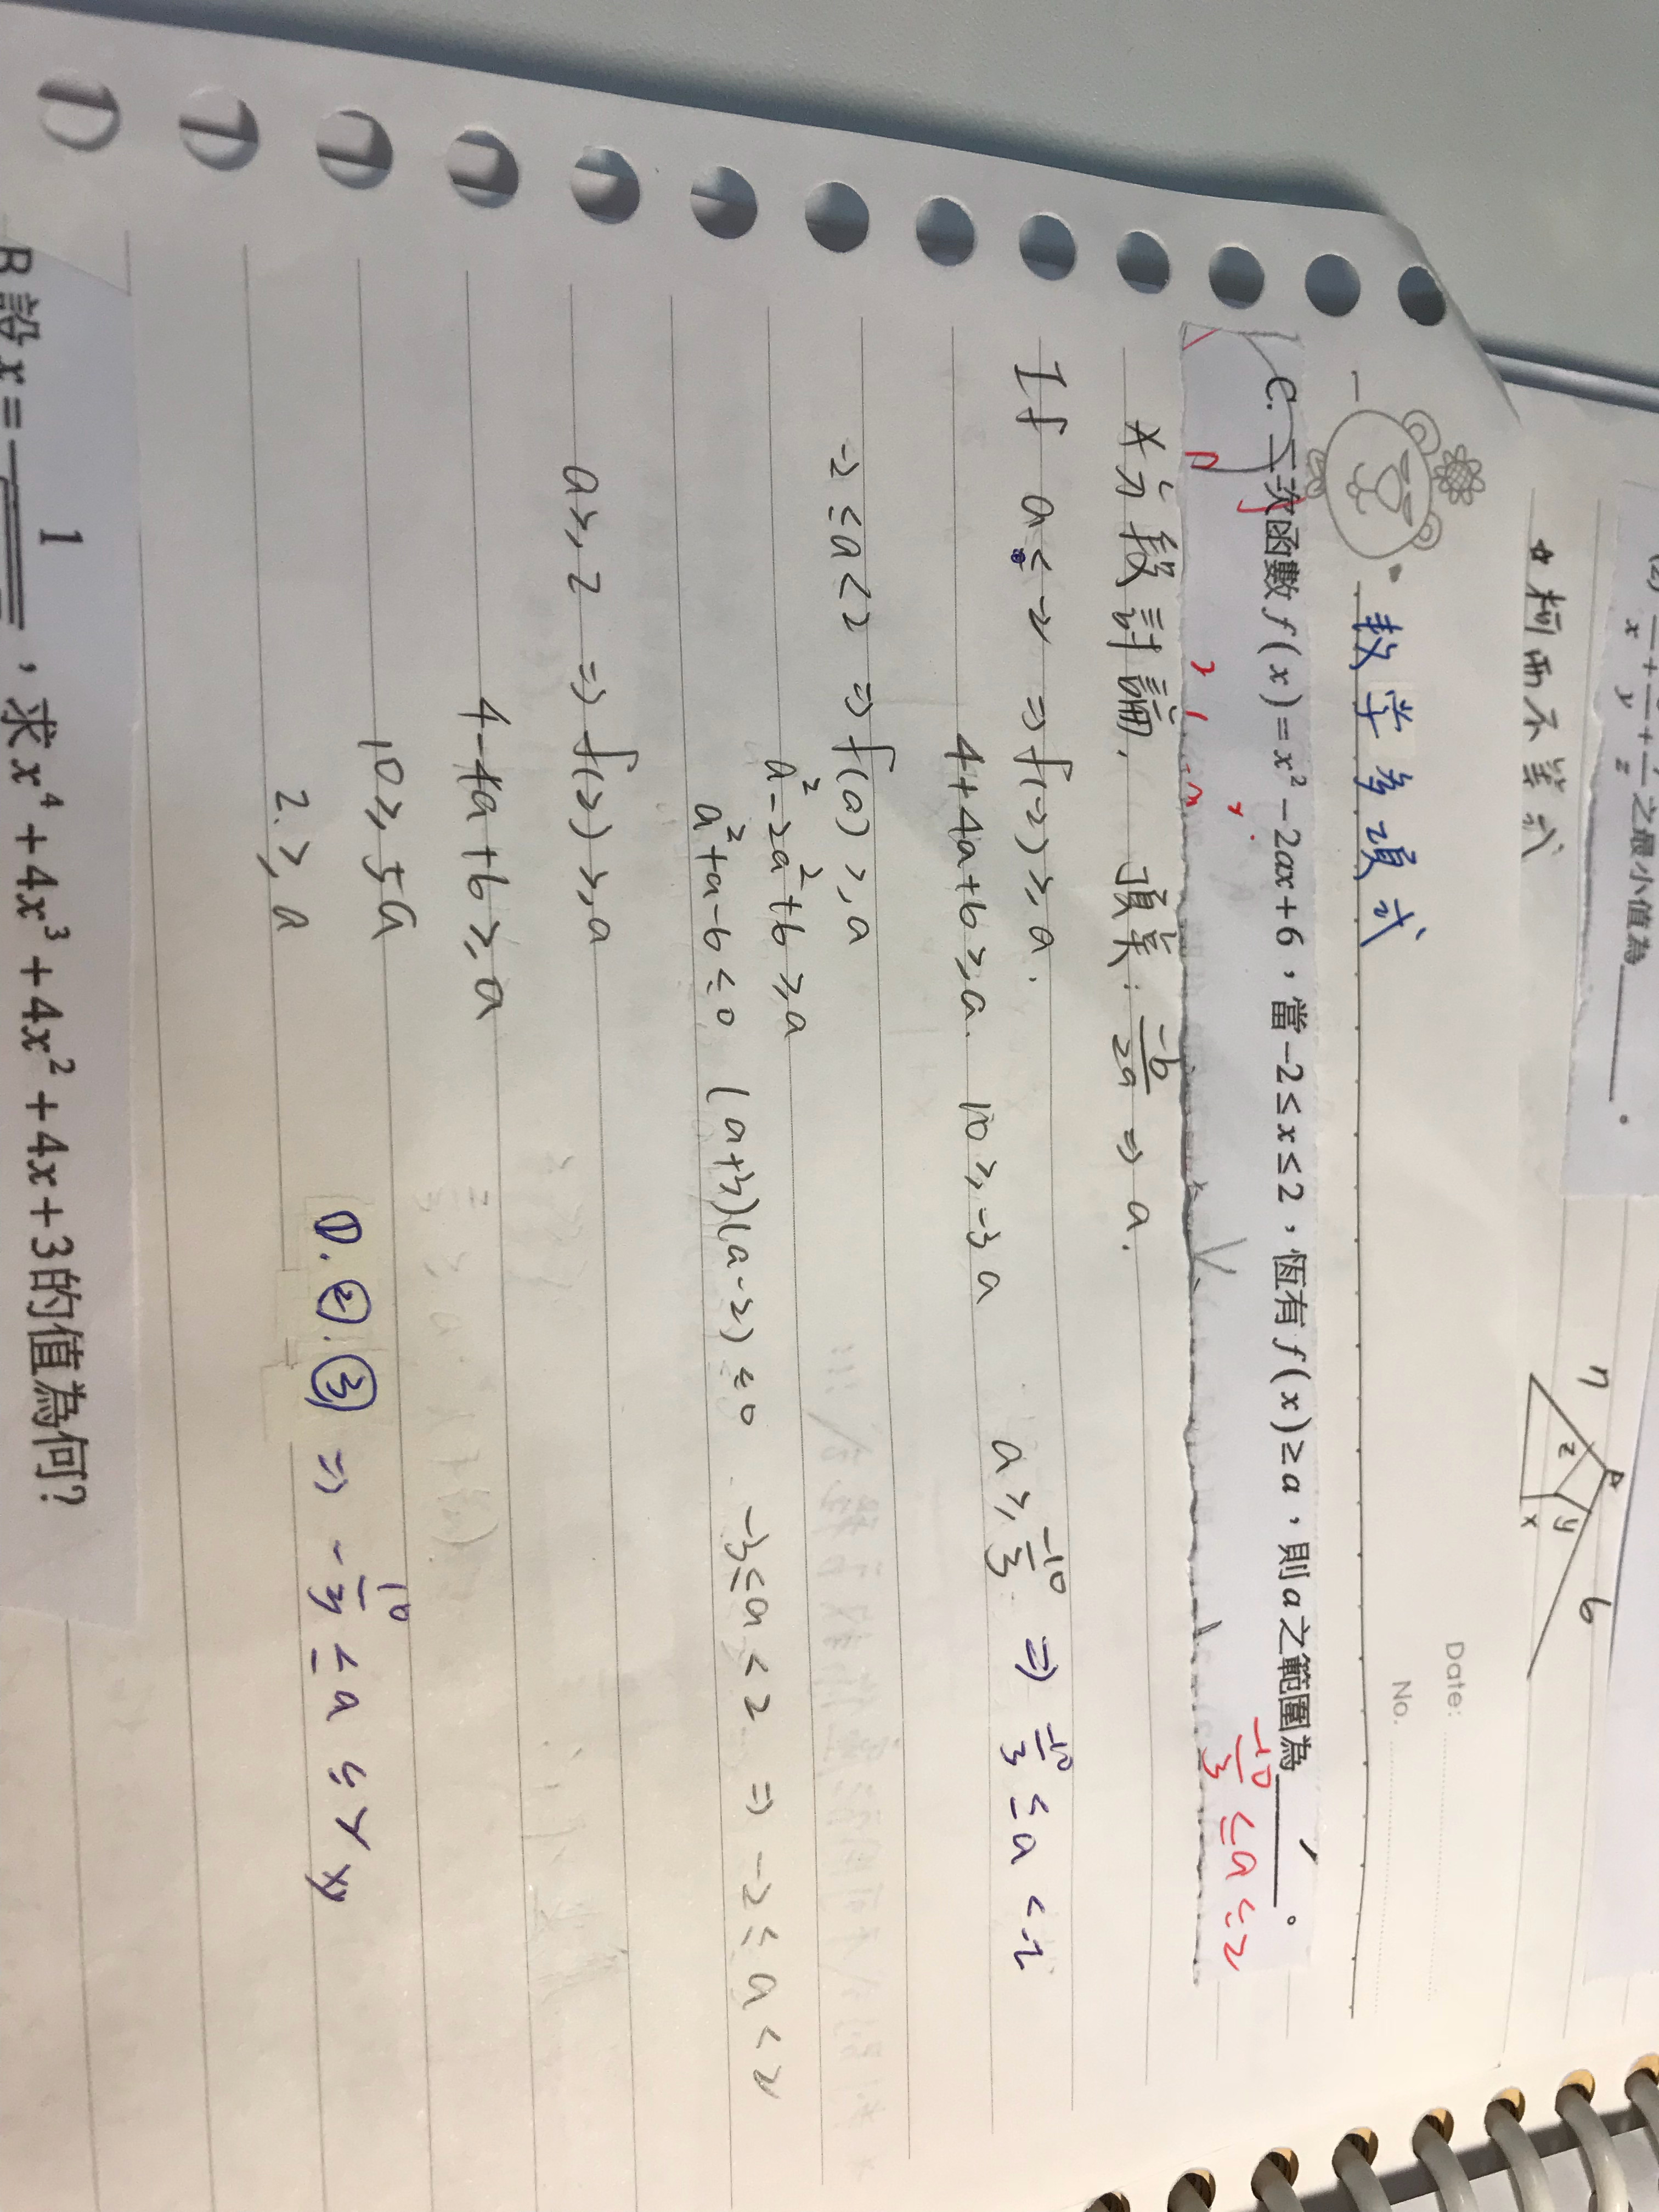 之最小值為______。
柯西不等式
7
A
6
z
y
x
Date:
No.
數學多項式
C. 二次函數 f(x)=x²-2ax+6,當-2≤x≤2,恆有 f(x)≥a,則a之範圍為______。
-10/3 ≤a≤2
*分段討論, 頂点: -b/2a ⇒ a.
If a<-2 ⇒ f(-2)≥a.
4+4a+6≥a. 10≥-3a a≥-10/3 ⇒ -10/3≤a<-2
-2≤a<2 ⇒ f(a)≥a
a²-2a²+6≥a
a²+a-6≤0 (a+3)(a-2)≤0 -3≤a<2 ⇒ -2≤a<2
a≥2 ⇒ f(2)≥a
4-4a+6≥a
10≥5a
2≥a
①.②.③ ⇒ -10/3≤a≤2
B 設x= 1 ,求x⁴+4x³+4x²+4x+3的值為何?